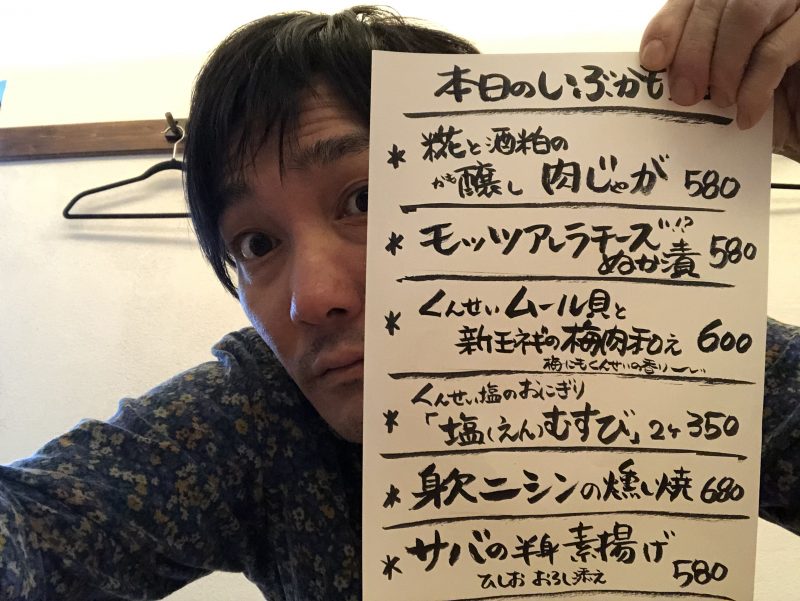 本日のいぶかも
* 糀と酒粕の
かも醸し 肉じゃが 580
* モッツアレラチーズ
ぬか漬!? 580
* くんせいムール貝と
新玉ネギの梅肉和え 600
梅にもくんせいの香り〜い
くんせい塩のおにぎり
* 「塩(えん)むすび」2ヶ 350
* 身欠ニシンの燻し焼 680
* サバの半身素揚げ
ひしお おろし添え 580